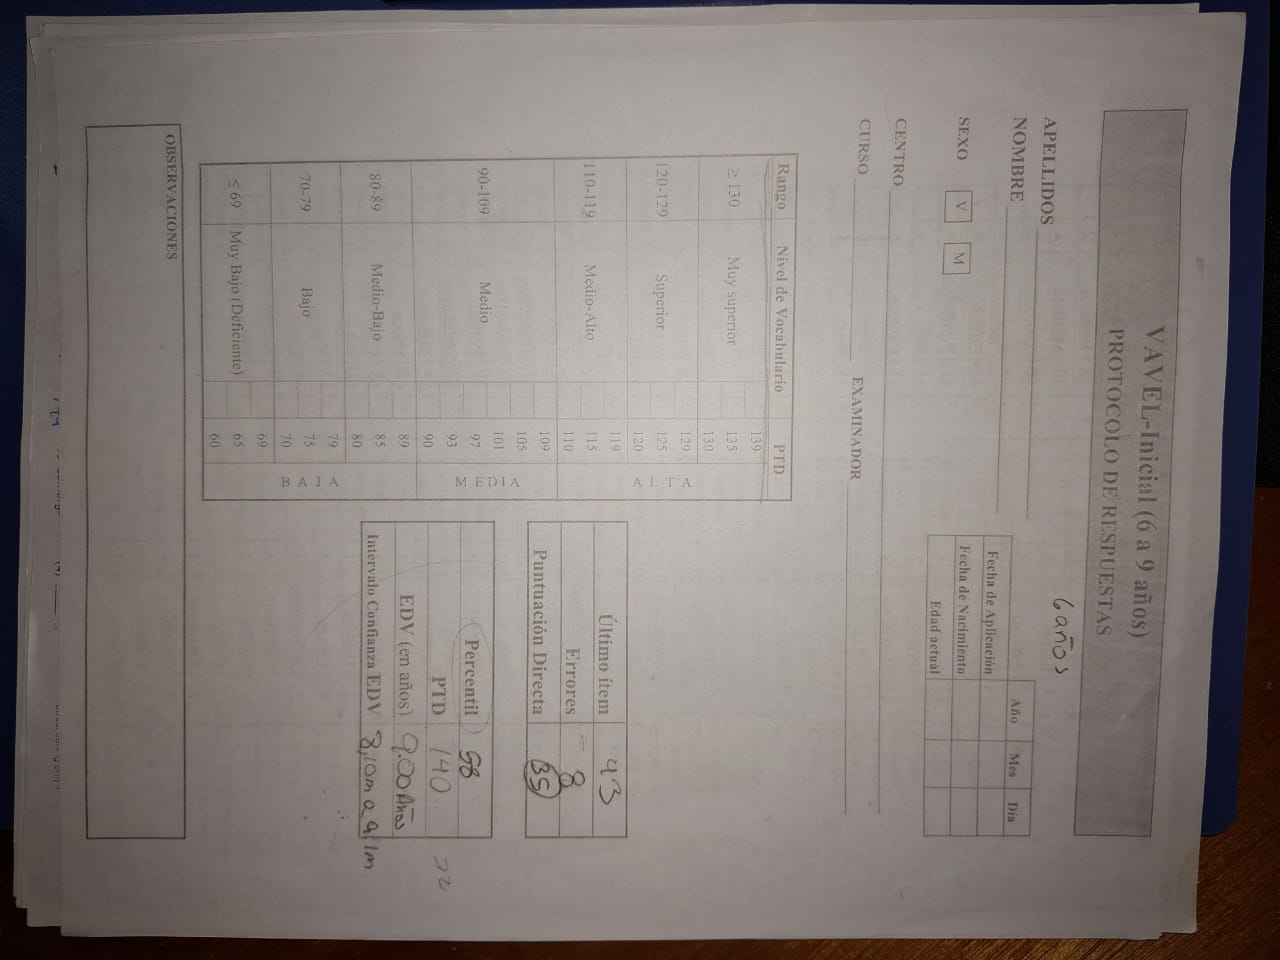 VAVEL-Inicial (6 a 9 años)
PROTOCOLO DE RESPUESTAS
6 años
APELLIDOS
NOMBRE
Año Mes Día
Fecha de Aplicación
Fecha de Nacimiento
Edad actual
SEXO V M
CENTRO
CURSO EXAMINADOR
Rango Nivel de Vocabulario PTD
139
≥ 130 Muy superior 135
130
129
120-129 Superior 125
120
ALTA
119
110-119 Medio-Alto 115
110
109
105
101
90-109 Medio 97
93
90
MEDIA
89
80-89 Medio-Bajo 85
80
79
70-79 Bajo 75
70
BAJA
69
≤ 69 Muy Bajo (Deficiente) 65
60
Último ítem 43
Errores 8
Puntuación Directa 35
Percentil 58
PTD 140
EDV (en años) 9.00 Años
Intervalo Confianza EDV 8,10m a 9,1m
OBSERVACIONES